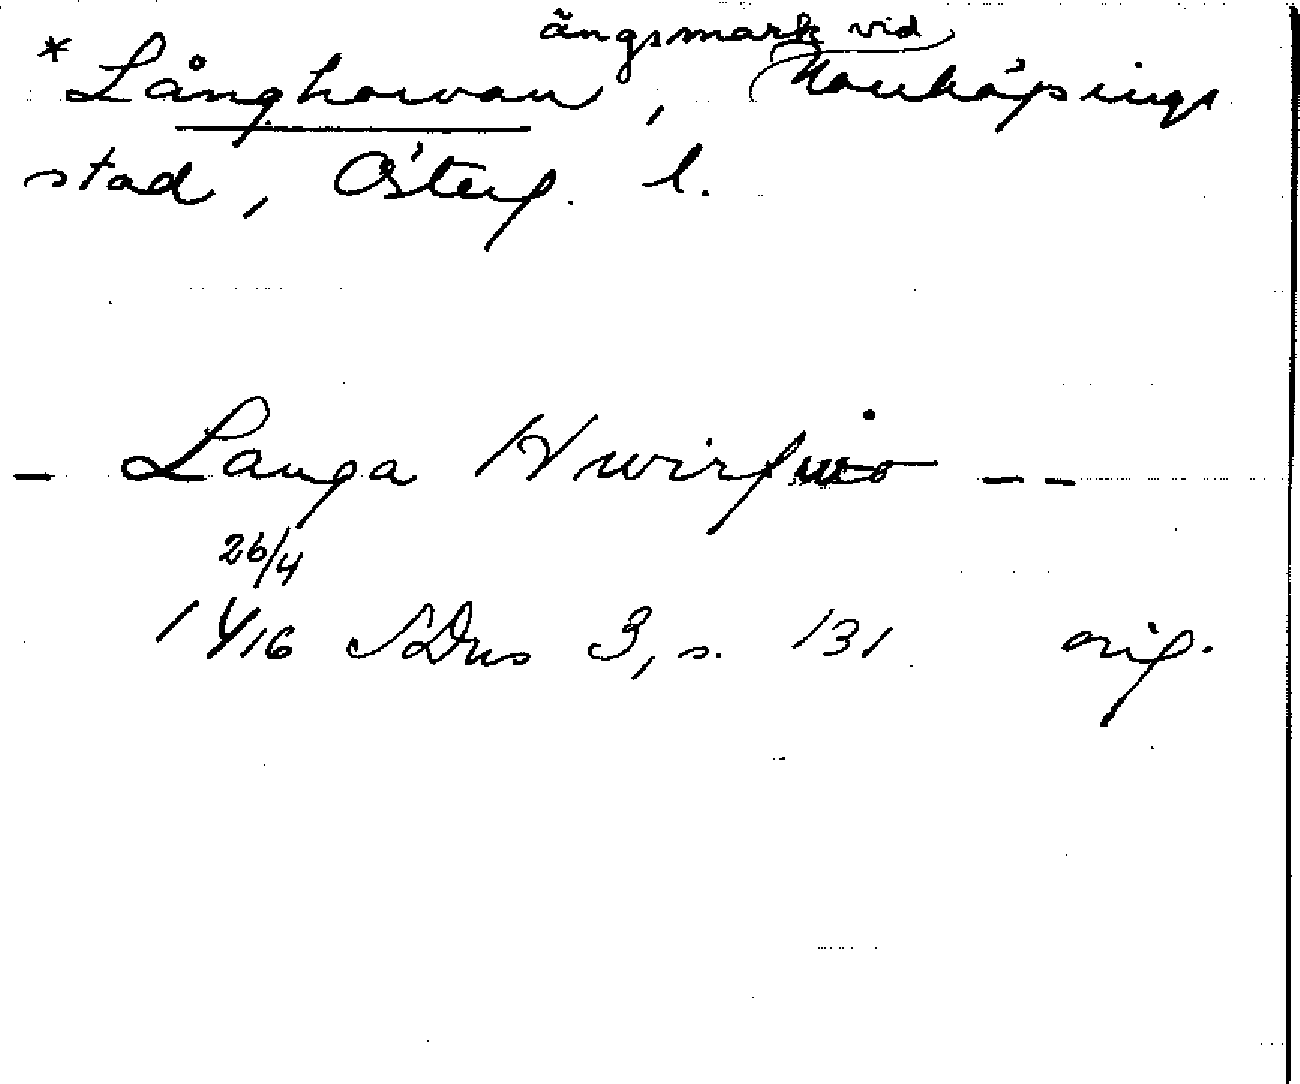 ängsmark vid
* Långhorvan, Norrköpings
stad, Österg. l.
- Langa Hwirfwo --
26/4
1416 SDns 3, s. 131 orig.